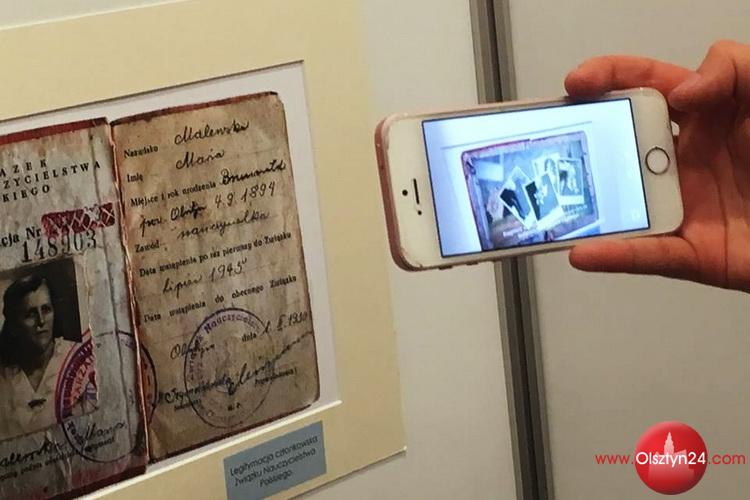 AZEK
CZYCIELSTWA
KIEGO
cja Nr
148903
Malewska Maria
Nazwisko Malewska
Imię Maria
Miejsce i rok urodzenia
pow. Olsztyn 4.9.1894
Zawód nauczycielka
Data wstąpienia po raz pierwszy do Związku
Lipiec 1945
Data wstąpienia do obecnego Związku
Olsztyn dnia
Legitymacja członkowska
Związku Nauczycielstwa
Polskiego.
www.Olsztyn24.com